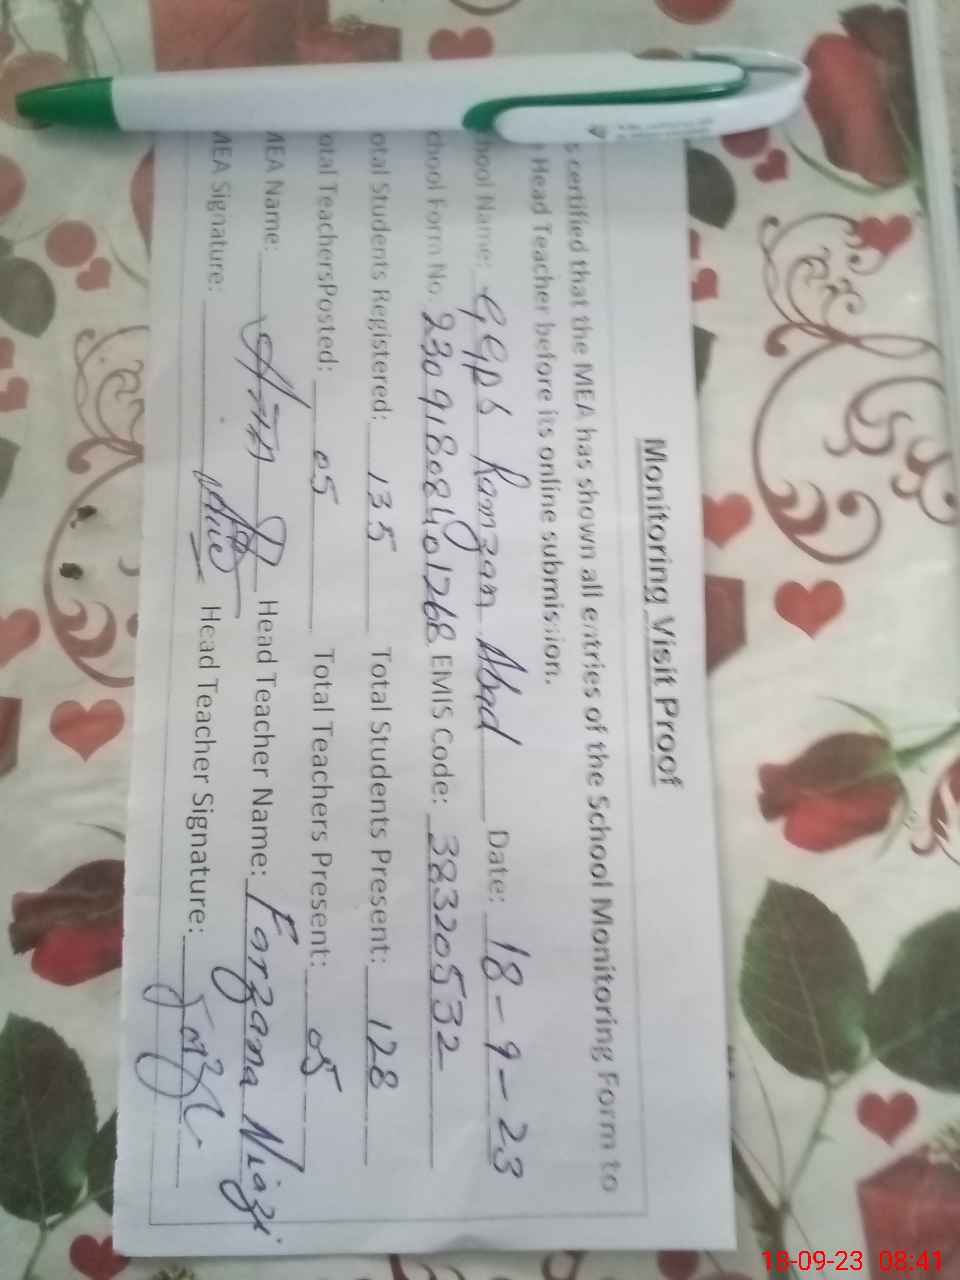 Monitoring Visit Proof
s certified that the MEA has shown all entries of the School Monitoring Form to
Head Teacher before its online submission.
hool Name: GGPS Ramzan Abad Date: 18-9-23
chool Form No. 23091808401268 EMIS Code: 38320532
otal Students Registered: 135 Total Students Present: 128
otal TeachersPosted: 05 Total Teachers Present: 05
MEA Name: Head Teacher Name: Farzana Niazi
MEA Signature: Head Teacher Signature:
18-09-23 08:41